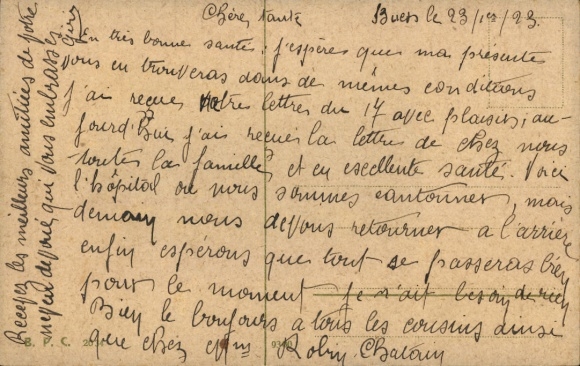 Chères tante Buers le 23/1er/23.
En très bonne santé; j'espères que ma présente
vous en trouveras dans de mêmes conditions
j'ai recues votre lettres du 17 avec plaisir; au-
jourd'hui j'ai recues la lettre de chez nous
toutes la famille et en escellente santé. Voici
l'hôpital ou nous sommes cantonner, mais
demain nous devons retourner a l'arrière
enfin espérons que tout se passeras bien
pour le moment je n'ait besoin de rien
Bien le bonjours a tous les cousins ainsi
que chez Robin Chatain
Recevez les meilleurs amitiées de votre
neveu dévoué qui vous embrasses
B. P. C.